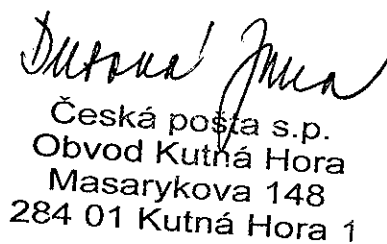 Česká pošta s.p.
Obvod Kutná Hora
Masarykova 148
284 01 Kutná Hora 1